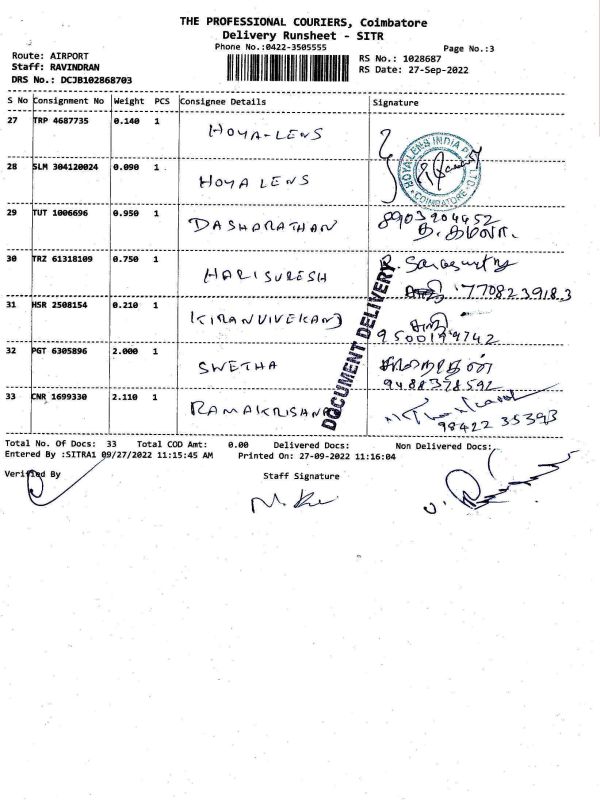 THE PROFESSIONAL COURIERS, Coimbatore
Delivery Runsheet - SITR
Phone No.:0422-3505555
Page No.:3
Route: AIRPORT
Staff: RAVINDRAN
DRS No.: DCJB102868703
RS No.: 1028687
RS Date: 27-Sep-2022
S No Consignment No Weight PCS Consignee Details Signature
27 TRP 4687735 0.140 1 HOYA-LENS
HOYA LENS INDIA P LTD * COIMBATORE *
28 SLM 304120024 0.090 1 HOYA LENS
29 TUT 1006696 0.950 1 DASHARATHAN 8903904452
30 TRZ 61318109 0.750 1 HARISURESH 7708239183
31 HSR 2508154 0.210 1 KIRANVIVEKAND 9500199742
32 PGT 6305896 2.000 1 SWETHA 9488378592
33 CNR 1699330 2.110 1 RAMAKRISHNA 98422 35393
DOCUMENT DELIVERY
Total No. Of Docs: 33 Total COD Amt: 0.00 Delivered Docs: Non Delivered Docs:
Entered By :SITRA1 09/27/2022 11:15:45 AM Printed On: 27-09-2022 11:16:04
Verified By Staff Signature